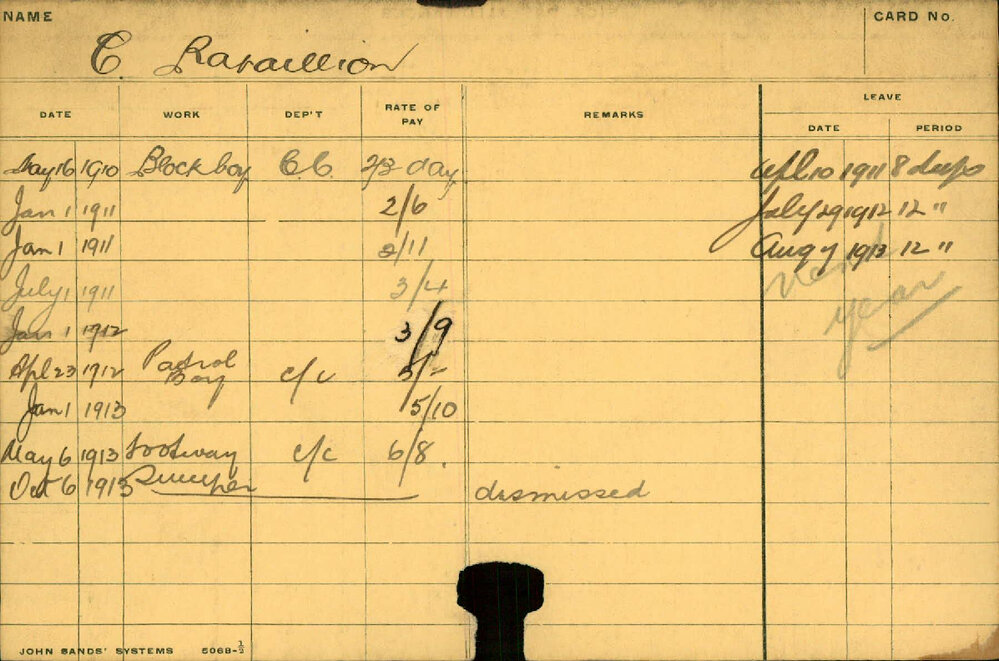 NAME CARD No.
C. Ravaillion
LEAVE
DATE WORK DEP'T RATE OF PAY REMARKS DATE PERIOD
May 16 1910 Block boy C.C. 2/3 day Apl 10 1911 8 days
Jan 1 1911 2/6 July 29 1912 12 "
Jan 1 1911 2/11 Aug 7 1913 12 "
July 1 1911 3/4 next
Jan 1 1912 3/9 year
Apl 23 1912 Patrol Boy c/c 5/-
Jan 1 1913 5/10
May 6 1913 Footway c/c 6/8.
Oct 6 1913 Sweeper dismissed
JOHN SANDS' SYSTEMS 506B-½